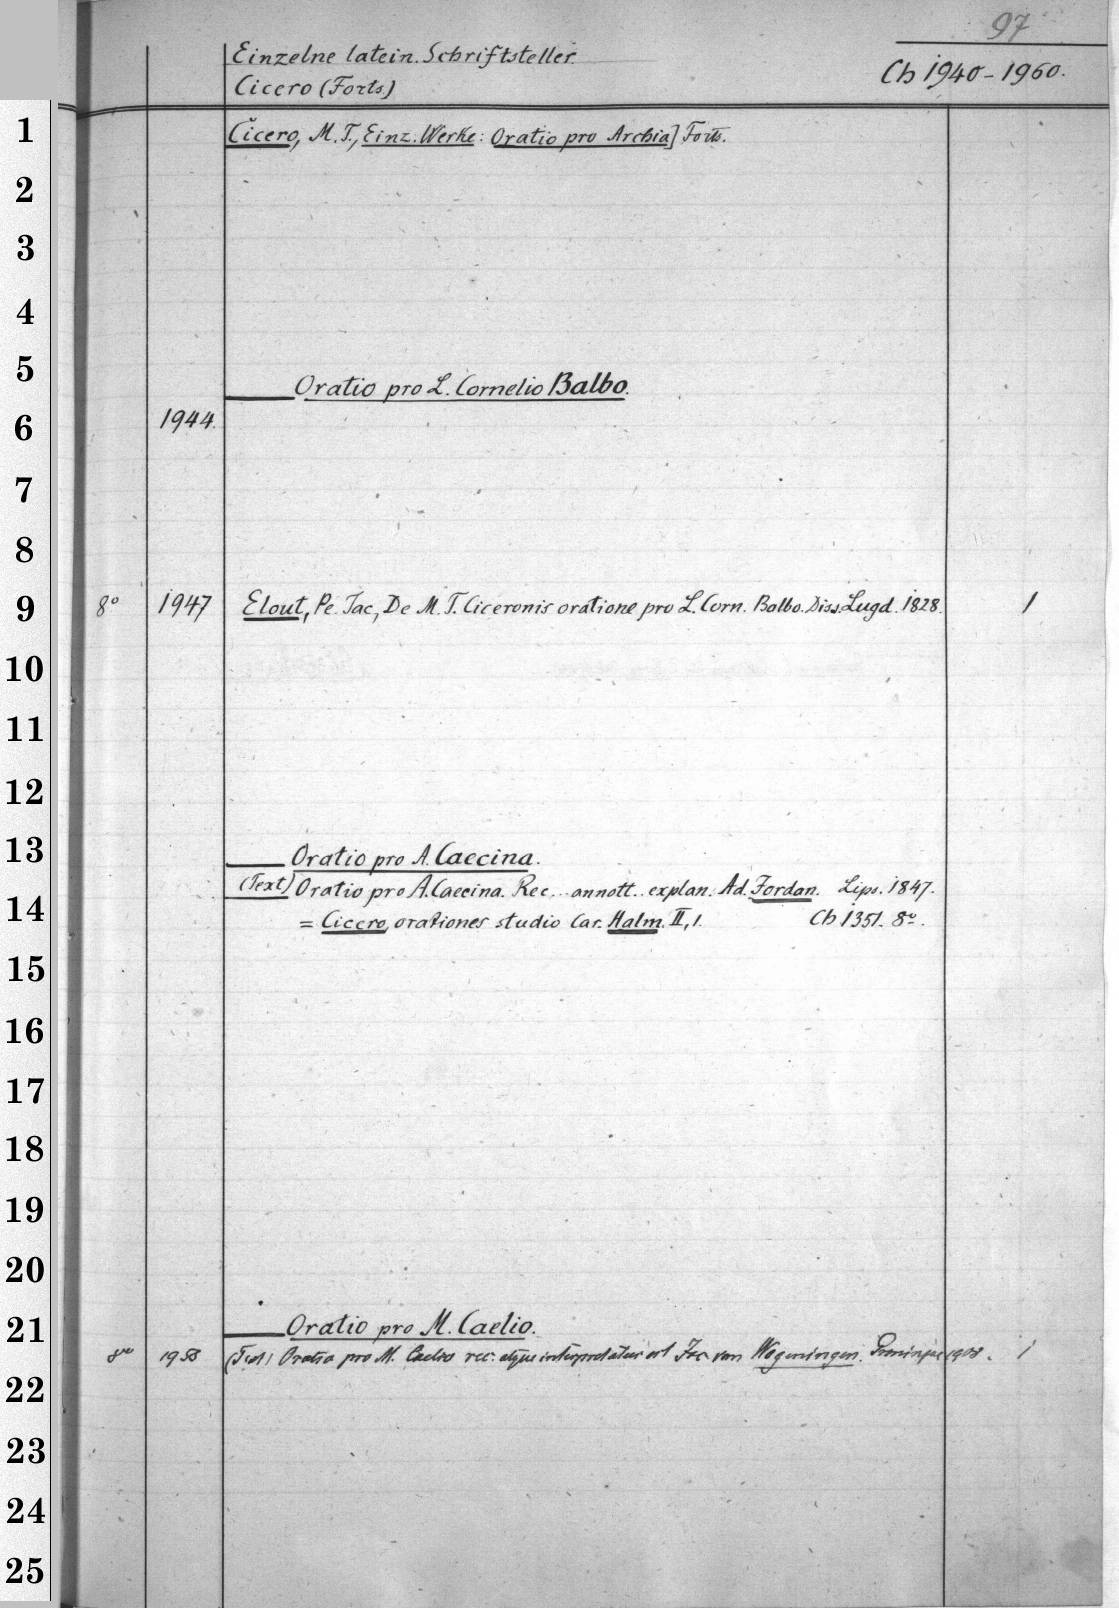 97
Einzelne latein. Schriftsteller.
Cicero (Forts.)
Ch 1940-1960.
1 Cicero, M. T., Einz. Werke: Oratio pro Archia] Forts.
2
3
4
5 Oratio pro L. Cornelio Balbo.
6 1944.
7
8
9 8° 1947 Elout, Pe. Jac., De M. T. Ciceronis oratione pro L. Corn. Balbo. Diss. Lugd. 1828. 1
10
11
12
13 Oratio pro A. Caecina.
(Text) Oratio pro A. Caecina. Rec... annott.. explan. Ad. Jordan. Lips. 1847.
14 = Cicero, orationes studio Car. Halm. II, 1. Ch 1351. 8°.
15
16
17
18
19
20
21 Oratio pro M. Caelio.
8vo 1953 (Text) Oratio pro M. Caelio rec. atque interpretatus est Jac. van Wageningen. Groningae 1908. 1
22
23
24
25